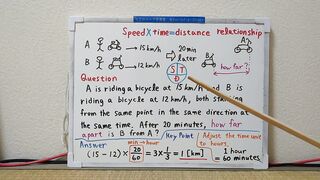 Speed X time = distance relationship
A → 15 km/h
B → 12 km/h
20 min
later
A
B
how far?
S T
D
Question
A is riding a bicycle at 15 km/h and B is
riding a bicycle at 12 km/h, both starting
from the same point in the same direction at
the same time. After 20 minutes, how far
apart is B from A?
Key Point / Adjust the time unit
to hours
Answer
min → hour
(15 - 12) × 20/60 = 3 × 1/3 = 1 [km]
1 hour
= 60 minutes